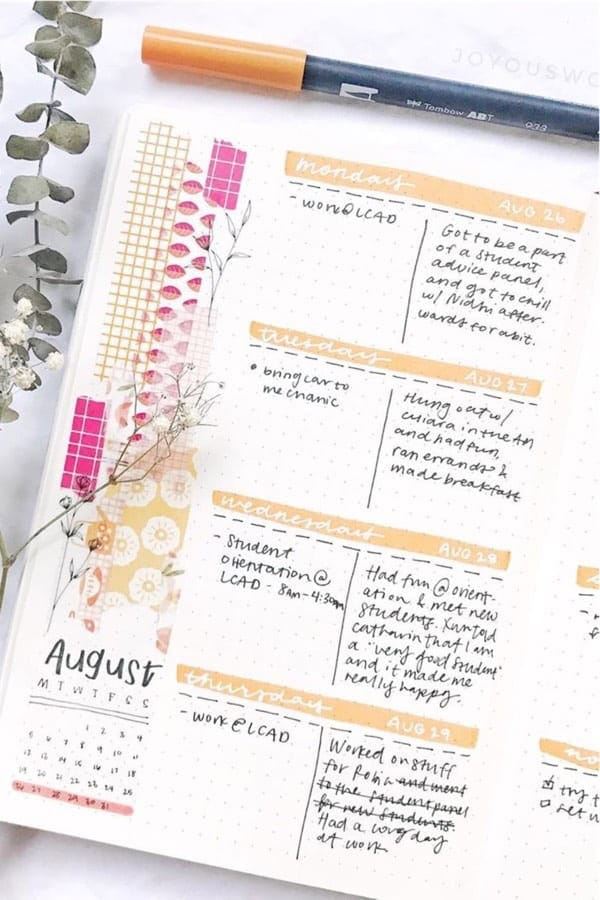 JOYOUSWO
Tombow ABT
monday
AUG 26
- work@LCAD
Got to be a part
of a student
advice panel,
and got to chill
w/ Nidhi after-
wards for a bit.
tuesday
AUG 27
• bring car to
mechanic
Hung out w/
in the AM
and had fun,
ran errands &
made breakfast
wednesday
AUG 28
- Student
orientation @
LCAD - 8am - 4:30pm
Had fun @ orient-
ation & met new
students. told
that I am
a "very good student"
and it made me
really happy.
thursday
AUG 29
- work@LCAD
Worked on stuff
for Robin and went
to the student panel
for new students.
Had a long day
at work
August
M T W T F S S
1 2 3 4
5 6 7 8 9 10 11
12 13 14 15 16 17 18
19 20 21 22 23 24 25
26 27 28 29 30 31
no
try t